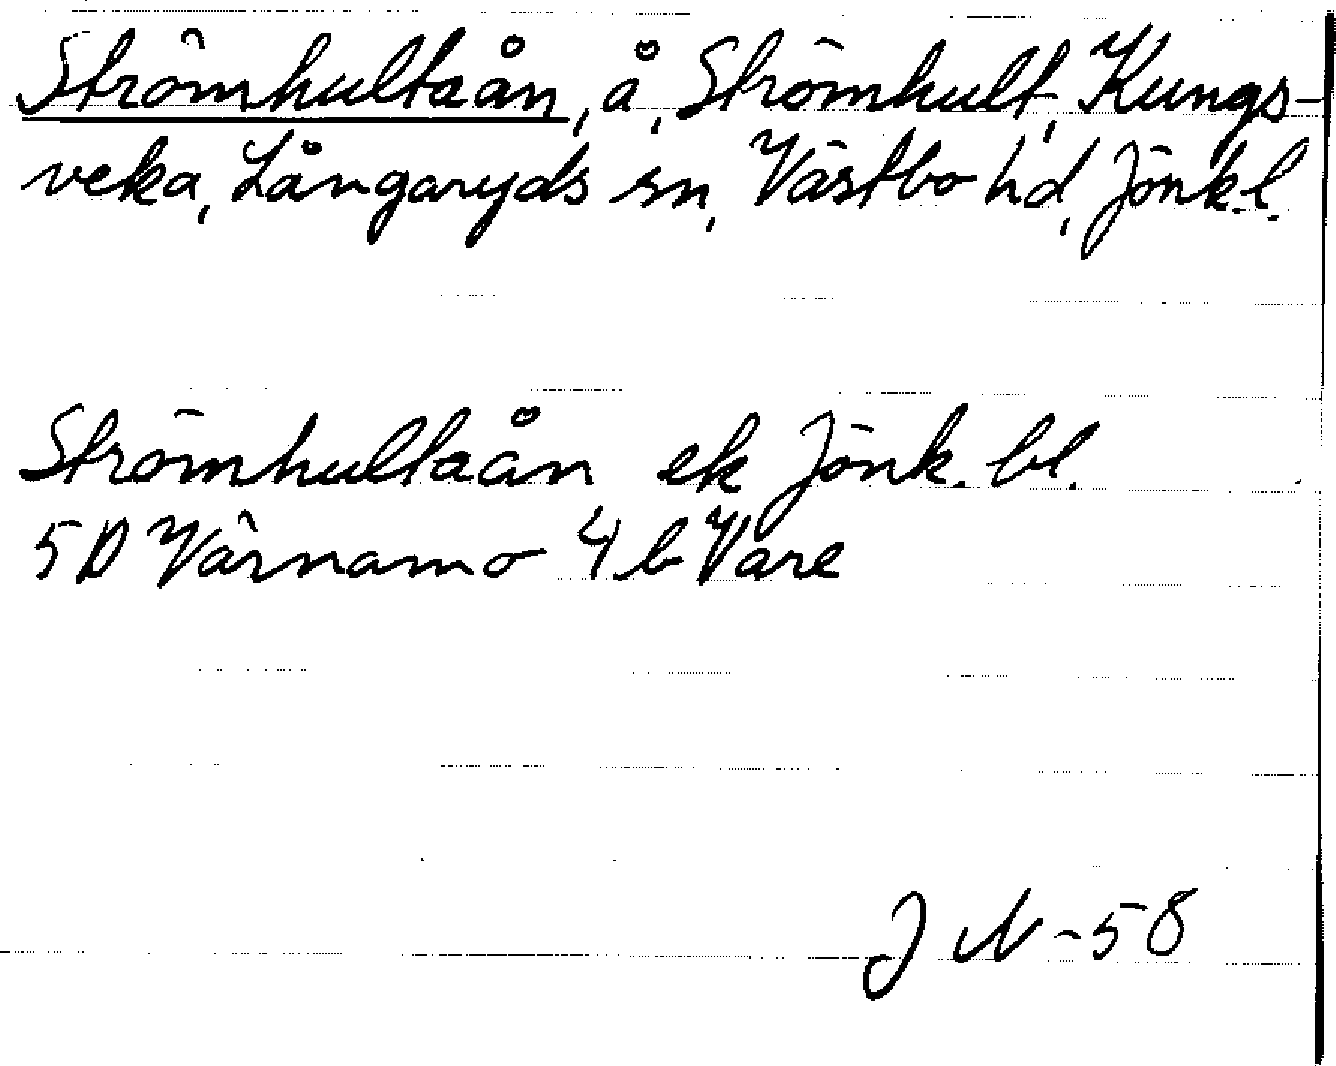 Strömhultaån, å, Strömhult, Kungs-
veka, Långaryds sn, Västbo hd, Jönk.l.
Strömhultaån ek Jönk. bl.
5D Värnamo 4 b Vare
J N -58